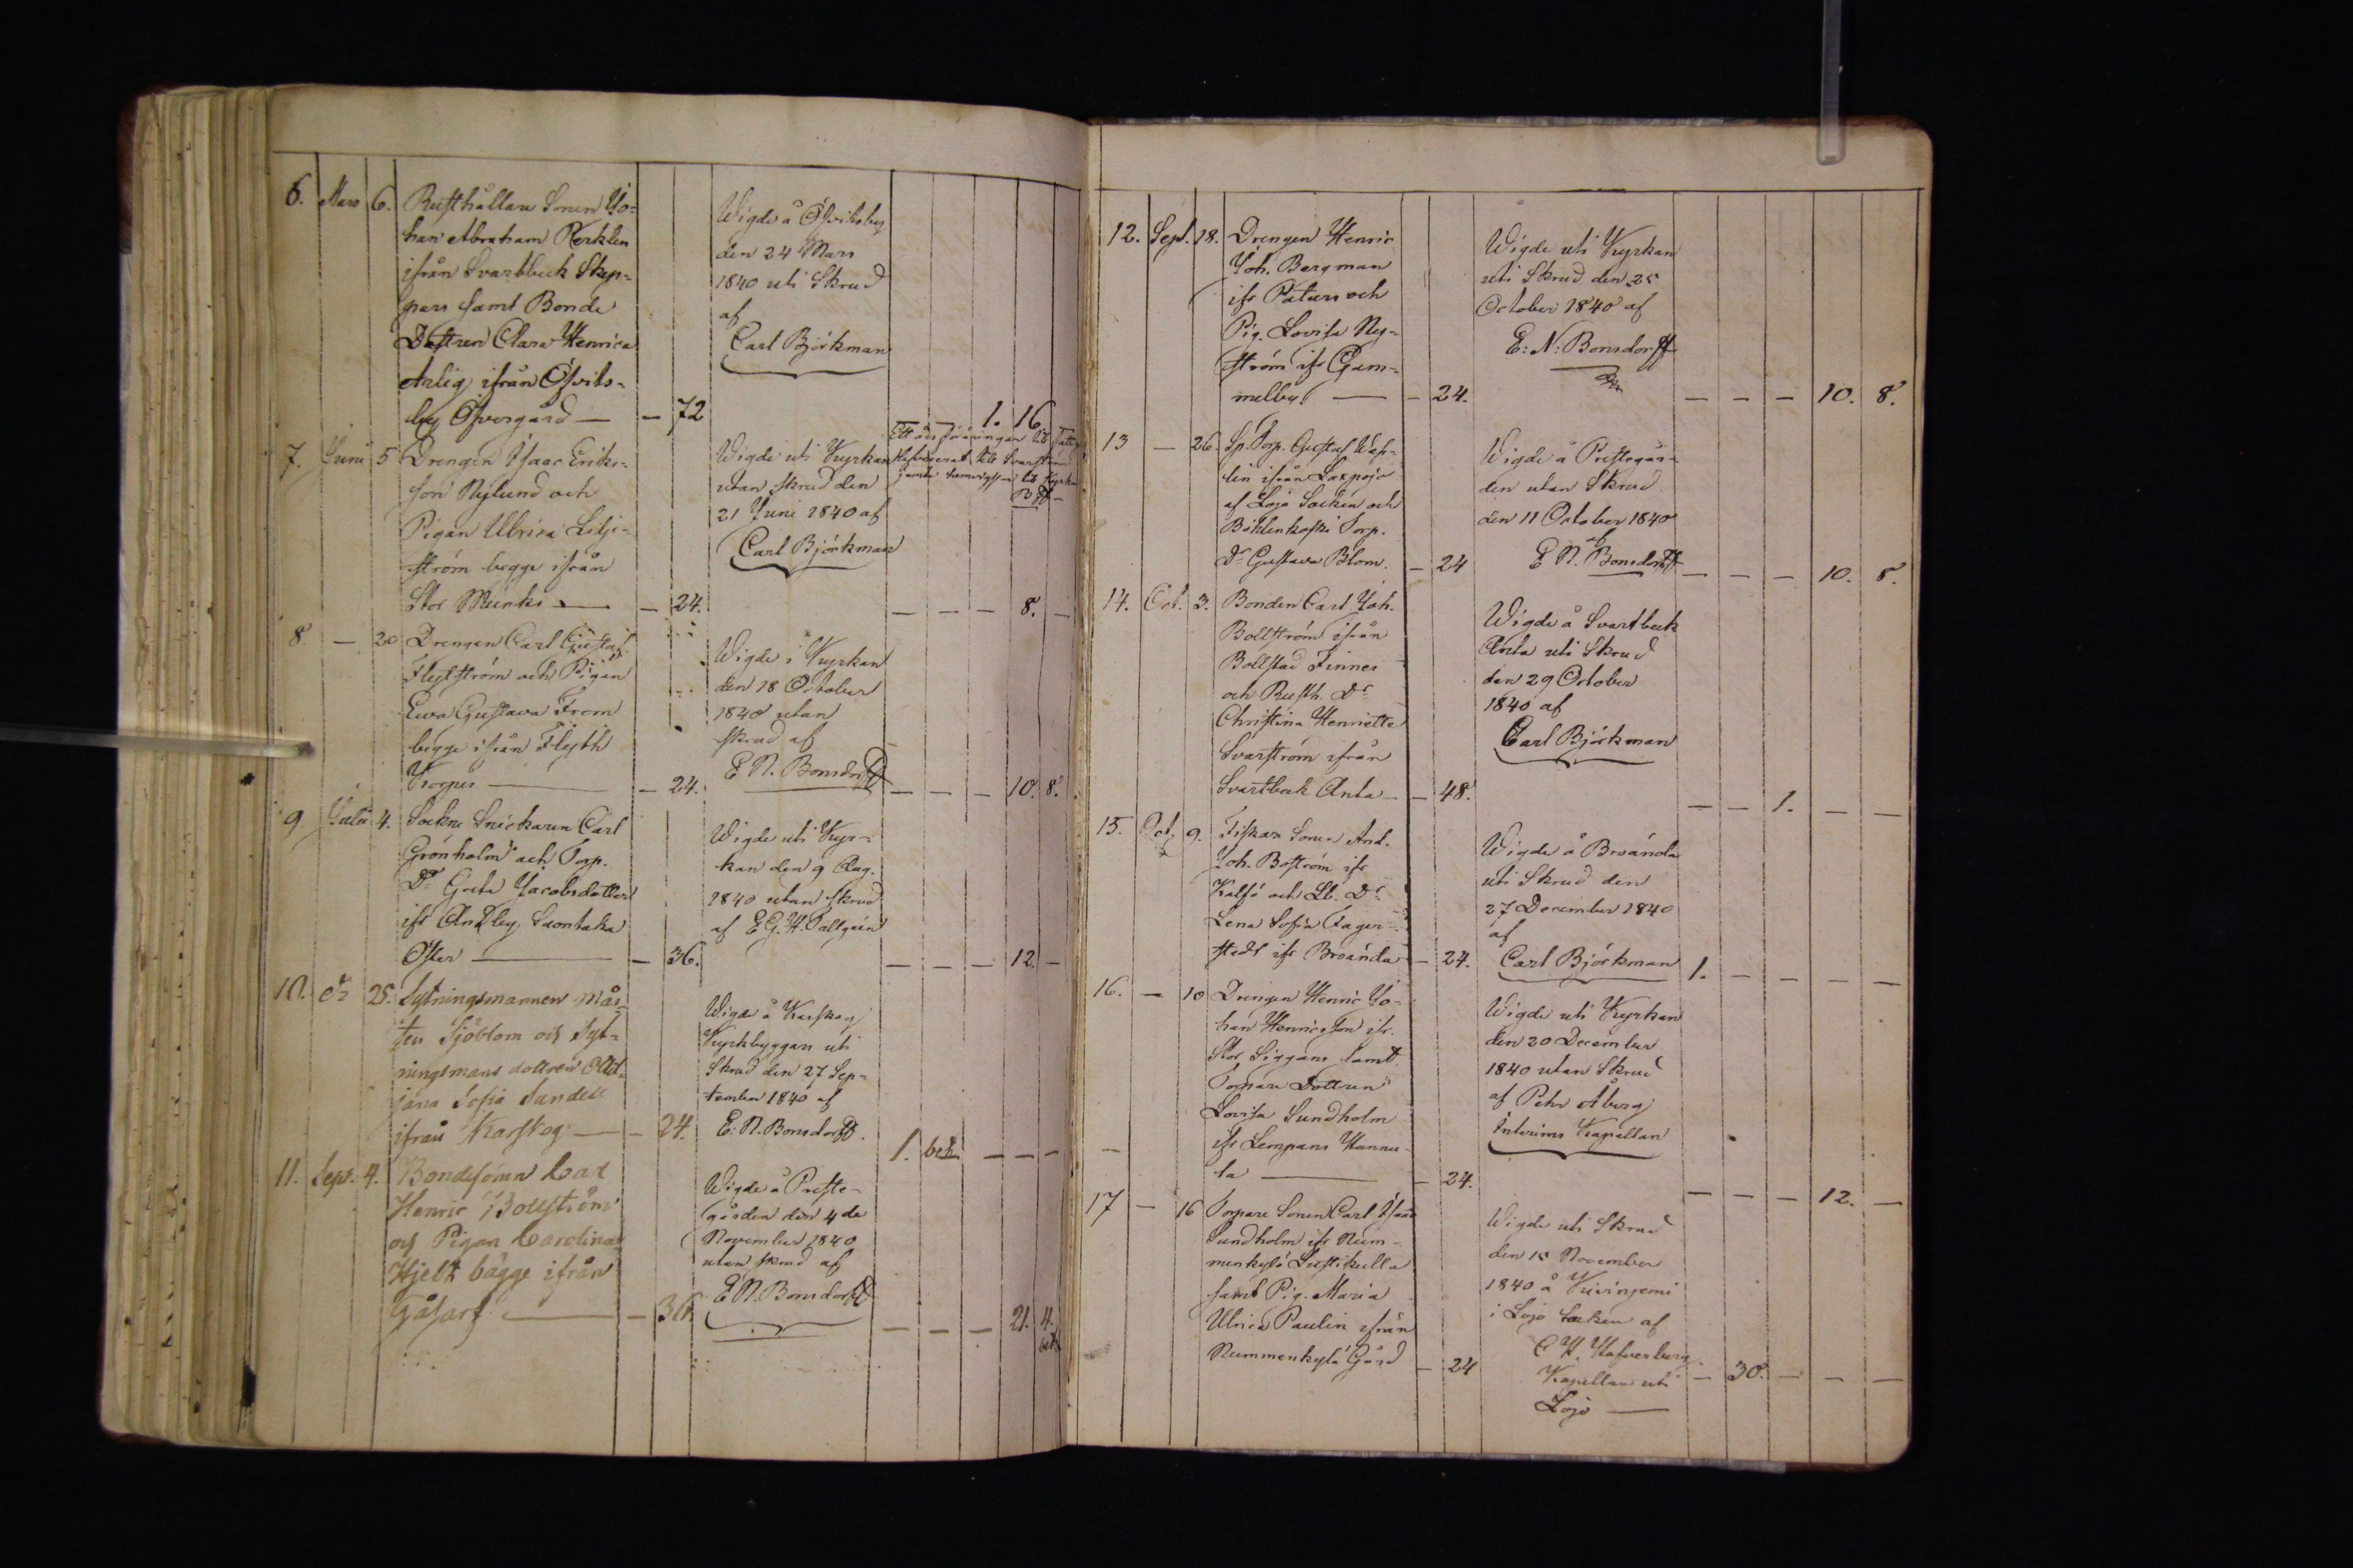 6. Mars 6. Rusthållare Sonen Jo-
han Abraham Perklen
ifrån Svartbeck Skep-
pars samt Bonde
Dottren Clara Henrica
Arlig ifrån Öfvits-
by Öfvergård — — 72
Wigde å Öfvitsby
den 24 Mars
1840 uti Skrud
af
Carl Björkman
1. 16
7. Juni 5 Drengen Isaac Eriks-
son Nylund och
Pigan Ulrica Lilje-
ström begge ifrån
Stor Munks — — 24.
Wigde uti Kyrkan
utan skrud den
21 Juni 1840 af
Carl Björkman
— — — 8. —
8 — 20 Drengen Carl Gustaf
Flytström och Pigan
Ewa Gustava From
begge ifrån Flyth
Korpus — — 24.
Wigde i Kyrkan
den 18 October
1840 utan
skrud af
E N. Bonsdorff
— — — 10. 8.
9. Julii 4. Sockne Snickaren Carl
Grönholm och Torp.
Dr Greta Jacobsdotter
ifr Ankby
Öster — — 36.
Wigde uti Kyr-
kan den 9 Aug.
1840 utan skrud
af
— — — 12. —
10. dº 25. Sytningsmannen Mår-
ten Sjöblom och Syt-
ningsmans dottren
Sofia Sandell
ifrån Karskog — — 24.
Wigde å Karskog
Kyrkbyggan uti
Skrud den 27 Sep-
tember 1840 af
E: N. Bonsdorff.
1. bet — — —
11. Sept. 4. Bondesonen Carl
Henric Bollström
och Pigan Carolina
Hjelt bägge ifrån
Gåsarf — — 36
Wigde å Preste-
gården den 4de
November 1840
utan skrud af
E N. Bonsdorff
— — — 21. 4.
bet
12. Sept. 18. Drengen Henric
Joh. Bergman
ifr Paturs och
Pig. Lovisa Ny-
ström ifr Gam-
melby. — — 24.
Wigde uti Kyrkan
uti Skrud den 25
October 1840 af
E: N: Bonsdorff
— — — 10. 8.
13 — 26. Sp. Torp. Gustaf
lin ifrån Laxpojo
af Lojo Socken och
Torp.
Dr Gustava Blom. — 24
Wigde å Prestegår-
den utan Skrud
den 11 October 1840
af
E N. Bonsdorff
— — — 10. 8.
14. Oct. 3. Bonden Carl Joh.
Bollström ifrån
Bollstad Finnes
och Rusth. Dr
Christina Henrietta
Svarström ifrån
Svartbeck Anta — — 48.
Wigde å Svartbeck
Anta uti Skrud
den 29 October
1840 af
Carl Björkman
— — 1. — —
15. Oct. 9. Fiskare Sonen And.
Joh. Boström ifr
Kalfö och Sb. Dr
Lena Sofia Fager-
stedt ifr Broända — 24.
Wigde å Broända
uti Skrud den
27 December 1840
af
Carl Björkman
1. — — — —
16. — 10 Drengen Henric Jo-
han Henricsson ifr.
Stor Siggans samt
Torpare Dottren
Lovisa Sundholm
ifr Lempans Hannu-
la — — 24.
Wigde uti Kyrkan
den 20 December
1840 utan Skrud
af Pehr Åberg
Interims Kapellan
— — — 12. —
17 — 16 Torpare Sonen Carl Isaac
Sundholm ifr Num-
menkylä Lustikulla
samt Pig. Maria
Ulrica Paulin ifrån
Nummenkylä Gård — 24
Wigde uti Skrud
den 15 November
1840 å Kivinjemi
i Lojo Socken af
Kapellan uti
Lojo —
— 30. — — —